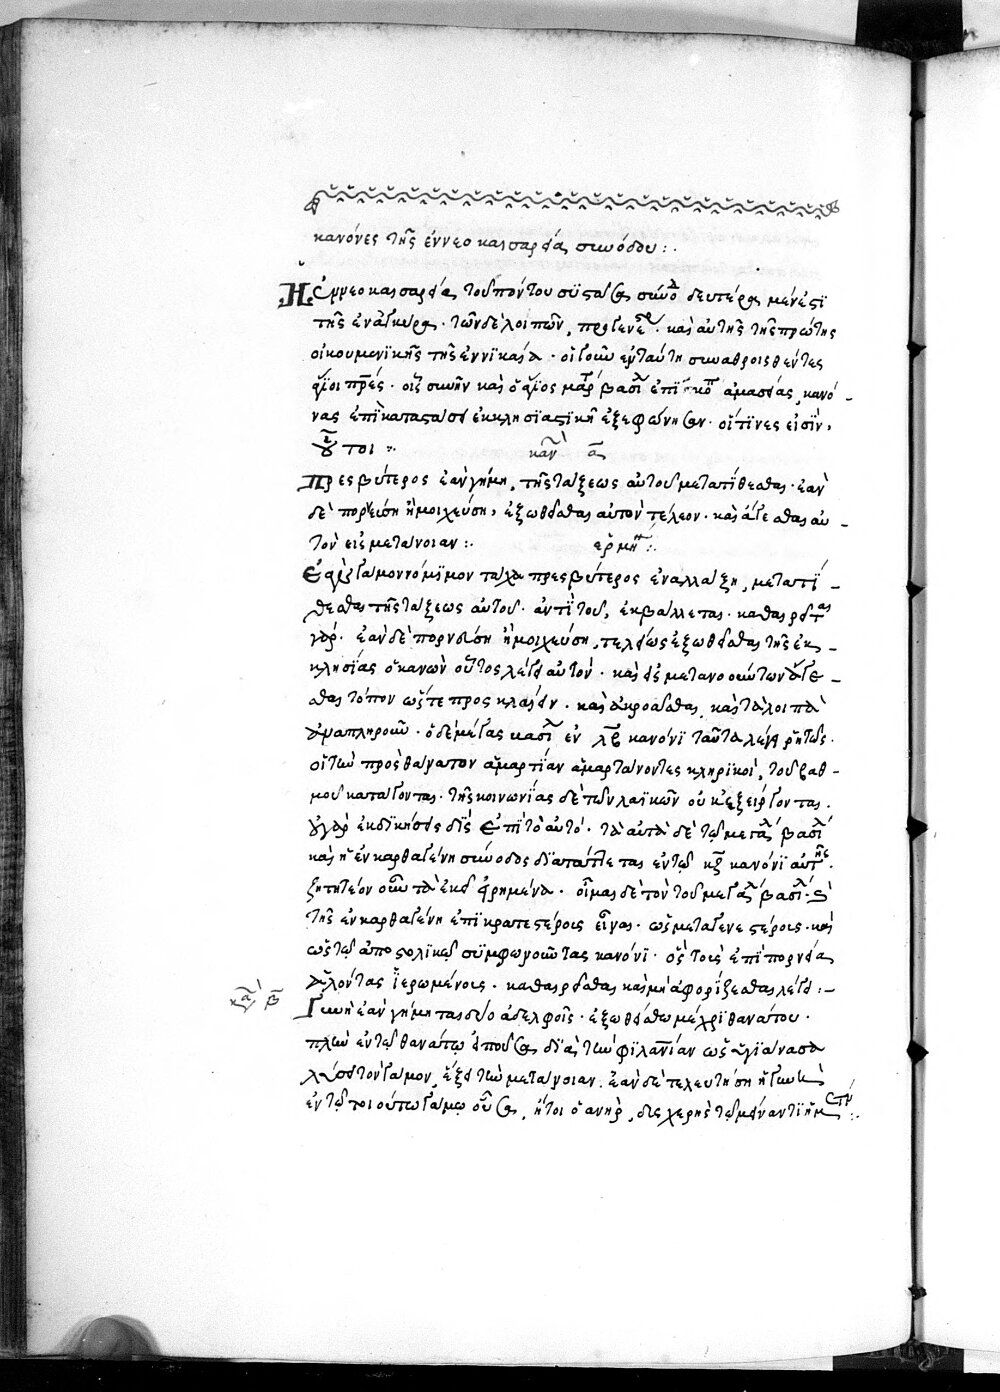 κανόνες τῆς ἐν νεοκαισαρεία συνόδου :.
Ἡ ἐν νεοκαισαρεία τοῦ πόντου συστᾶσα σύνοδ δευτέρα μὲν ἐστὶ
τῆς ἐν ἀγκύρα· τῶν δὲ λοιπῶν, προγενεστ· καὶ αὐτῆς τῆς πρώτης
οἰκουμενικῆς τῆς ἐν νικαία· οἱ γοῦν ἐν ταύτη συναθροισθέντες
ἅγιοι πρές· οἷς συνῆν καὶ ὁ ἅγιος μάρ βασιλ ἐπίσκοπ ἀμασείας, κανό-
νας ἐπὶ καταστάσει ἐκκλησιαστικῆ ἐξεφώνησαν· οἵτινες εἰσὶν,
οὗτοι :· καν α
πρεσβύτερος ἐὰν γήμη, τῆς τάξεως αὐτοῦ μετατίθεσθαι· ἐὰν
δὲ πορνεύση ἢ μοιχεύση, ἐξωθεῖσθαι αὐτὸν τέλεον· καὶ ἄγεσθαι αὐ-
τὸν εἰς μετάνοιαν :. ἑρμη :.
Ἐὰν γάμον νόμιμον τάχα πρεσβύτερος ἐναλλάξη, μετατί-
θεσθαι τῆς τάξεως αὐτοῦ· ἀντὶ τοῦ, ἐκβάλλεται· καθαιρεῖται
γάρ· ἐὰν δὲ πορνεύση ἢ μοιχεύση, τελείως ἐξωθεῖσθαι τῆς ἐκ-
κλησίας ὁ κανὼν οὗτος λέγει αὐτόν· καὶ εἰς μετανοούντων ἄγε-
σθαι τόπον ὥστε προσκλαίειν· καὶ ἀκροᾶσθαι, καὶ τὰ λοιπὰ
ἀναπληροῦν· ὁ δὲ μέγας βασιλ ἐν λβ κανόνι ταῦτα λέγει ῥητῶς·
οἱ τὴν πρὸς θάνατον ἁμαρτίαν ἁμαρτάνοντες κληρικοὶ, τοῦ βαθ-
μοῦ κατάγονται· τῆς κοινωνίας δὲ τῶν λαϊκῶν οὐκ ἐξείργονται.
οὐ γὰρ ἐκδικήσεις δὶς ἐπὶ τὸ αὐτό· τὰ αὐτὰ δὲ τῶ μεγάλ βασιλ
καὶ ἡ ἐν καρθαγένη σύνοδος διατάττεται ἐν τῶ κζ κανόνι αὐτῆς.
ζητητέον οὖν τὰ ἐκεῖ εἰρημένα· οἶμαι δὲ τὸν τοῦ μεγάλ βασιλ· καὶ
τῆς ἐν καρθαγένη ἐπικρατεστέροις εἶναι· ὡς μεταγενεστέροις· καὶ
ὡς τῶ ἀποστολικῶ συμφωνοῦντας κανόνι· ὃς τοὺς ἐπὶ πορνεία
ἁλόντας ἱερωμένους· καθαιρεῖσθαι καὶ μὴ ἀφορίζεσθαι λέγει :-
καν β Γυνὴ ἐὰν γήμηται δύο ἀδελφοῖς· ἐξωθείσθω μέχρι θανάτου·
πλὴν ἐν τῶ θανάτω εἰποῦσα διὰ τὴν φιλανίαν ὡς ὑγιάνασα
λύσει τὸν γάμον, ἕξει τὴν μετάνοιαν. ἐὰν δὲ τελευτήση ἡ γυνὴ
ἐν τῶ τοιούτω γάμω οὖσα, ἤτοι ὁ ἀνὴρ, δυσχερὴς τῶ μείναντι ἡ μ